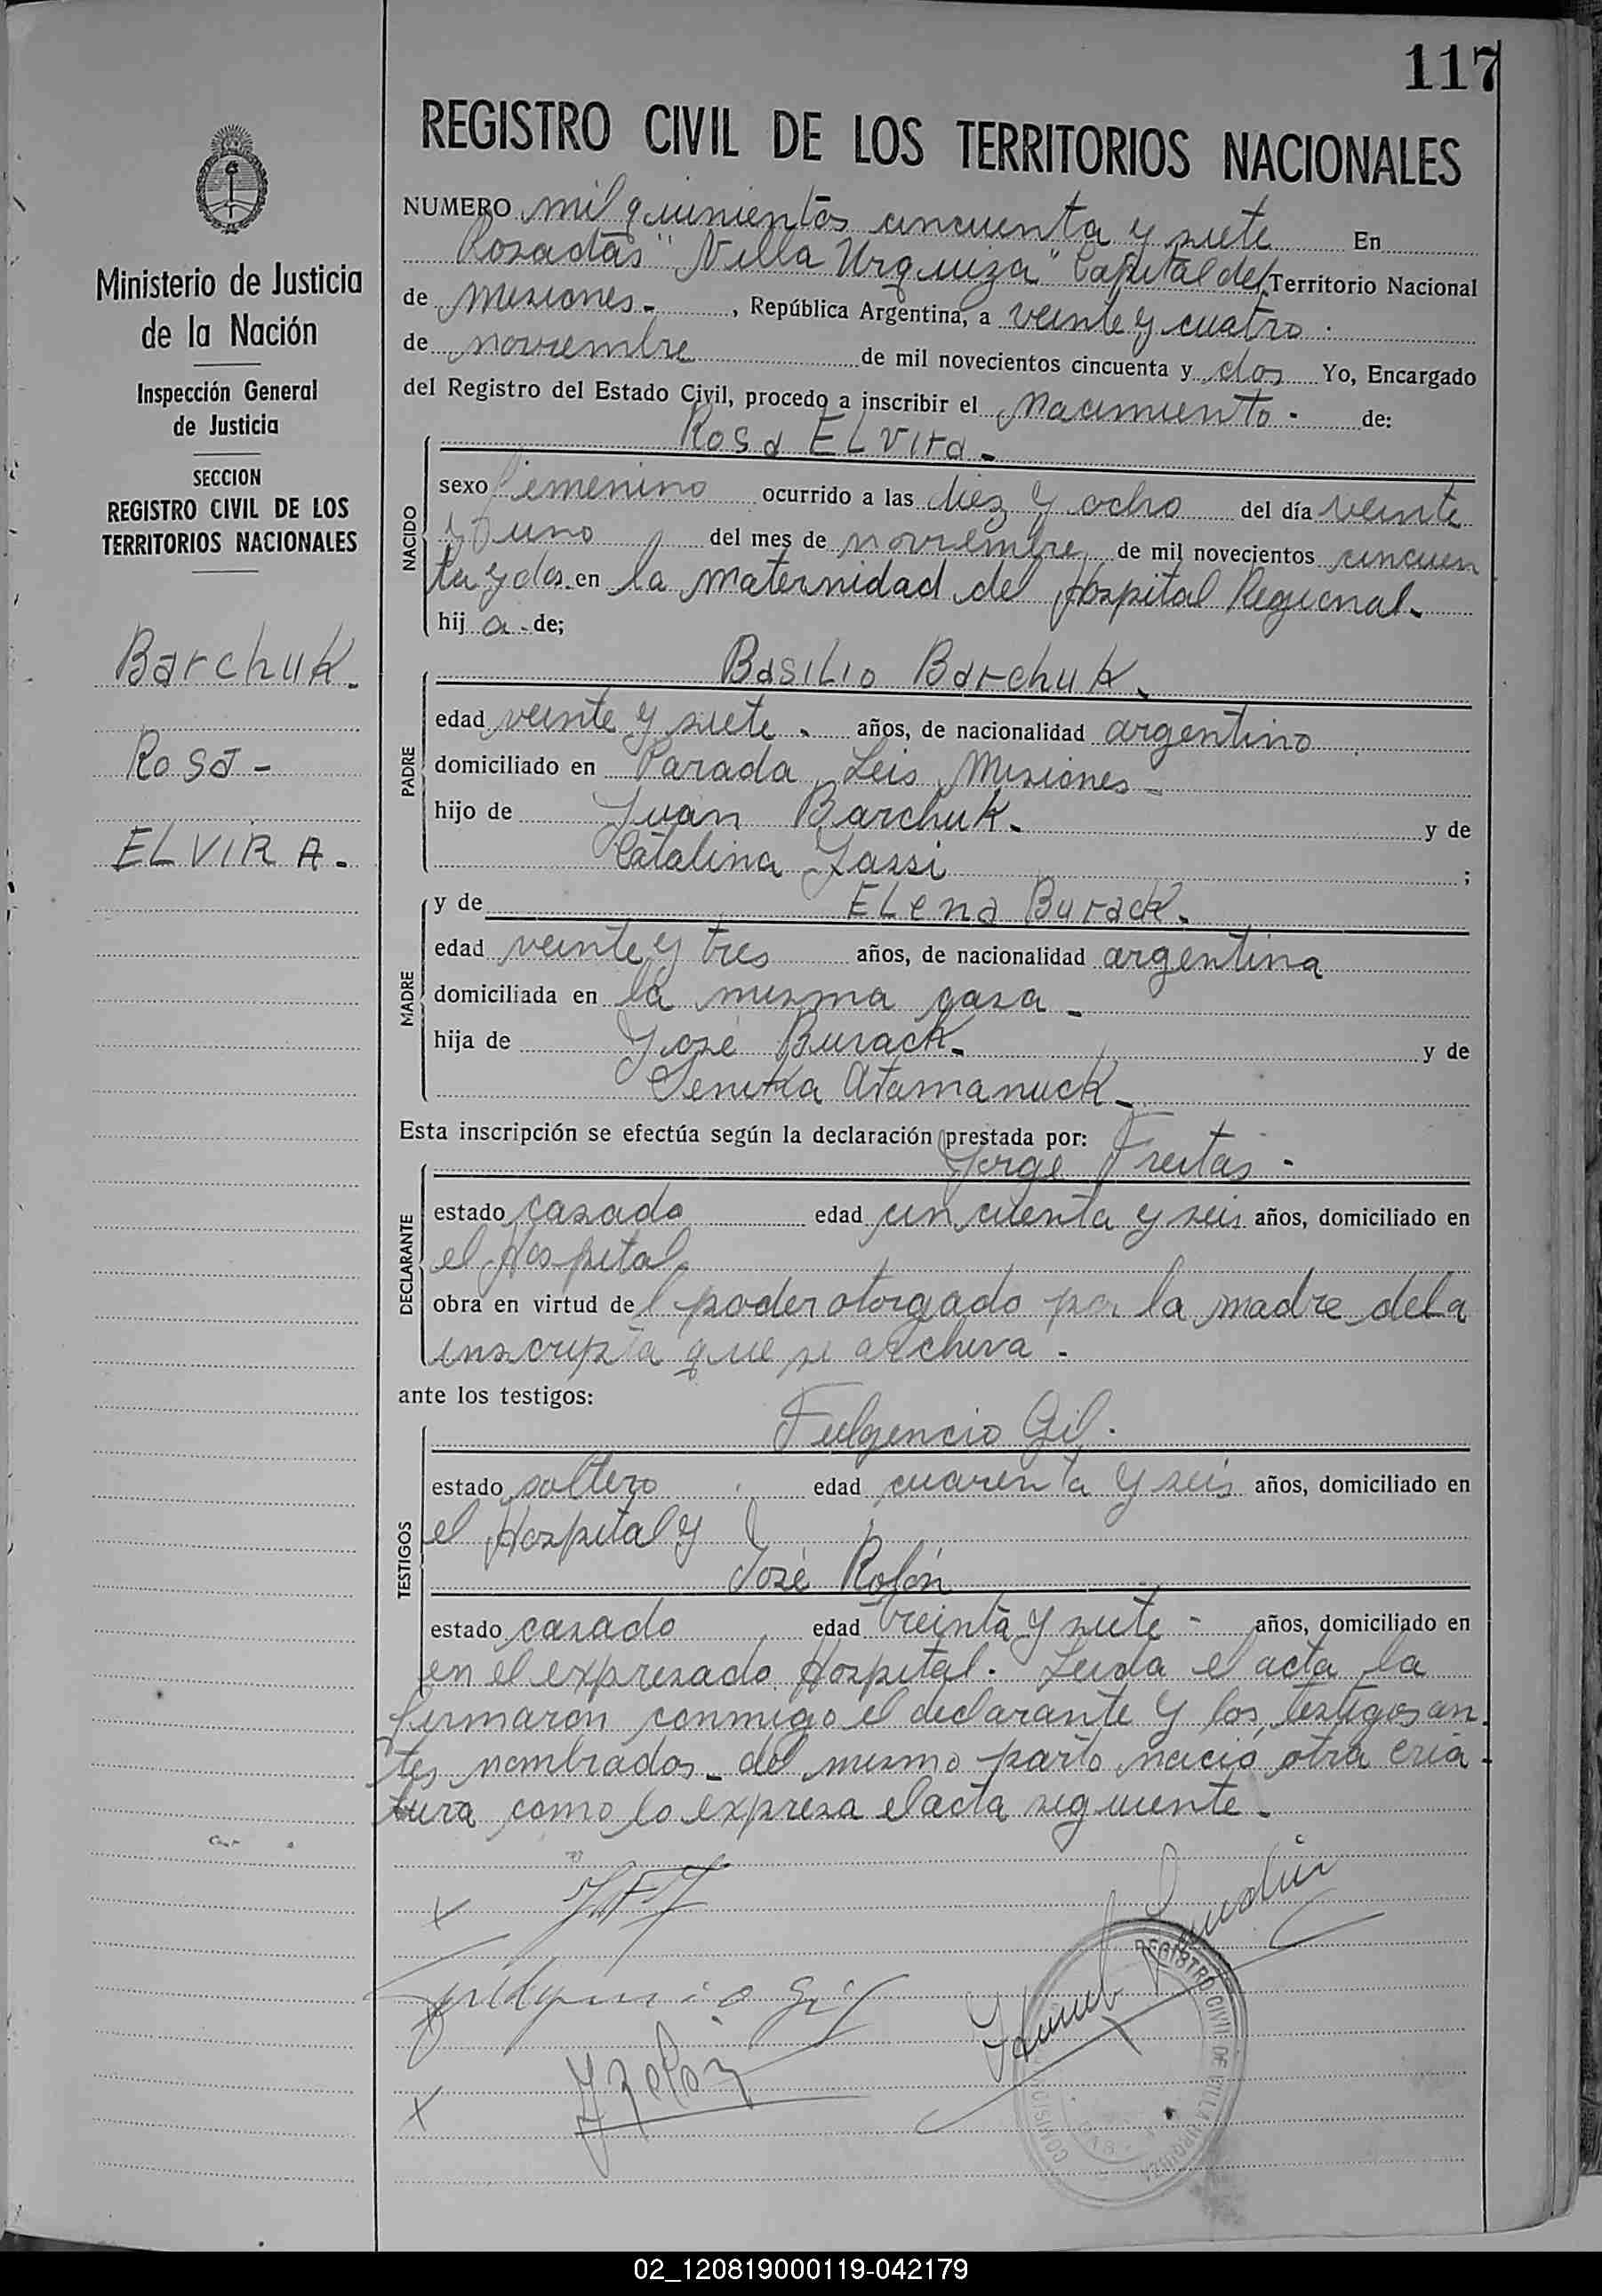 117
REGISTRO CIVIL DE LOS TERRITORIOS NACIONALES
Ministerio de Justicia
de la Nación
Inspección General
de Justicia
SECCION
REGISTRO CIVIL DE LOS
TERRITORIOS NACIONALES
Barchuk.
Rosa -
ELVIRA.
NUMERO mil quinientos cincuenta y siete En
Posadas "Villa Urquiza" Capital del Territorio Nacional
de Misiones - , República Argentina, a veinte y cuatro
de noviembre de mil novecientos cincuenta y dos Yo, Encargado
del Registro del Estado Civil, procedo a inscribir el Nacimiento - de:
Rosa ELvira -
NACIDO
sexo femenino ocurrido a las diez y ocho del día veinte
y uno del mes de noviembre de mil novecientos cincuen
ta y dos en la maternidad del Hospital Regional.
hij a - de;
PADRE
Basilio Barchuk.
edad veinte y siete . años, de nacionalidad argentino
domiciliado en Parada Leis, Misiones -
hijo de Juan Barchuk. y de
Catalina Zassi ;
MADRE
y de ELena Burack.
edad veinte y tres años, de nacionalidad argentina
domiciliada en la misma casa -
hija de José Burack - y de
Atamanuck -
Esta inscripción se efectúa según la declaración prestada por:
Jorge Freitas -
DECLARANTE
estado casado edad cincuenta y seis años, domiciliado en
el Hospital.
obra en virtud del poder otorgado por la madre de la
inscripta que se archiva -
ante los testigos:
TESTIGOS
Fulgencio Gil.
estado soltero edad cuarenta y seis años, domiciliado en
el Hospital y
José Rolón
estado casado edad treinta y siete - años, domiciliado en
en el expresado Hospital. Leida el acta la
firmaron conmigo el declarante y los testigos an
tes nombrados - del mismo parto nació otra cria -
tura como lo expresa el acta siguiente -
Fulgencio Gil
JRolón
REGISTRO CIVIL DE VILLA URQUIZA
02_120819000119-042179